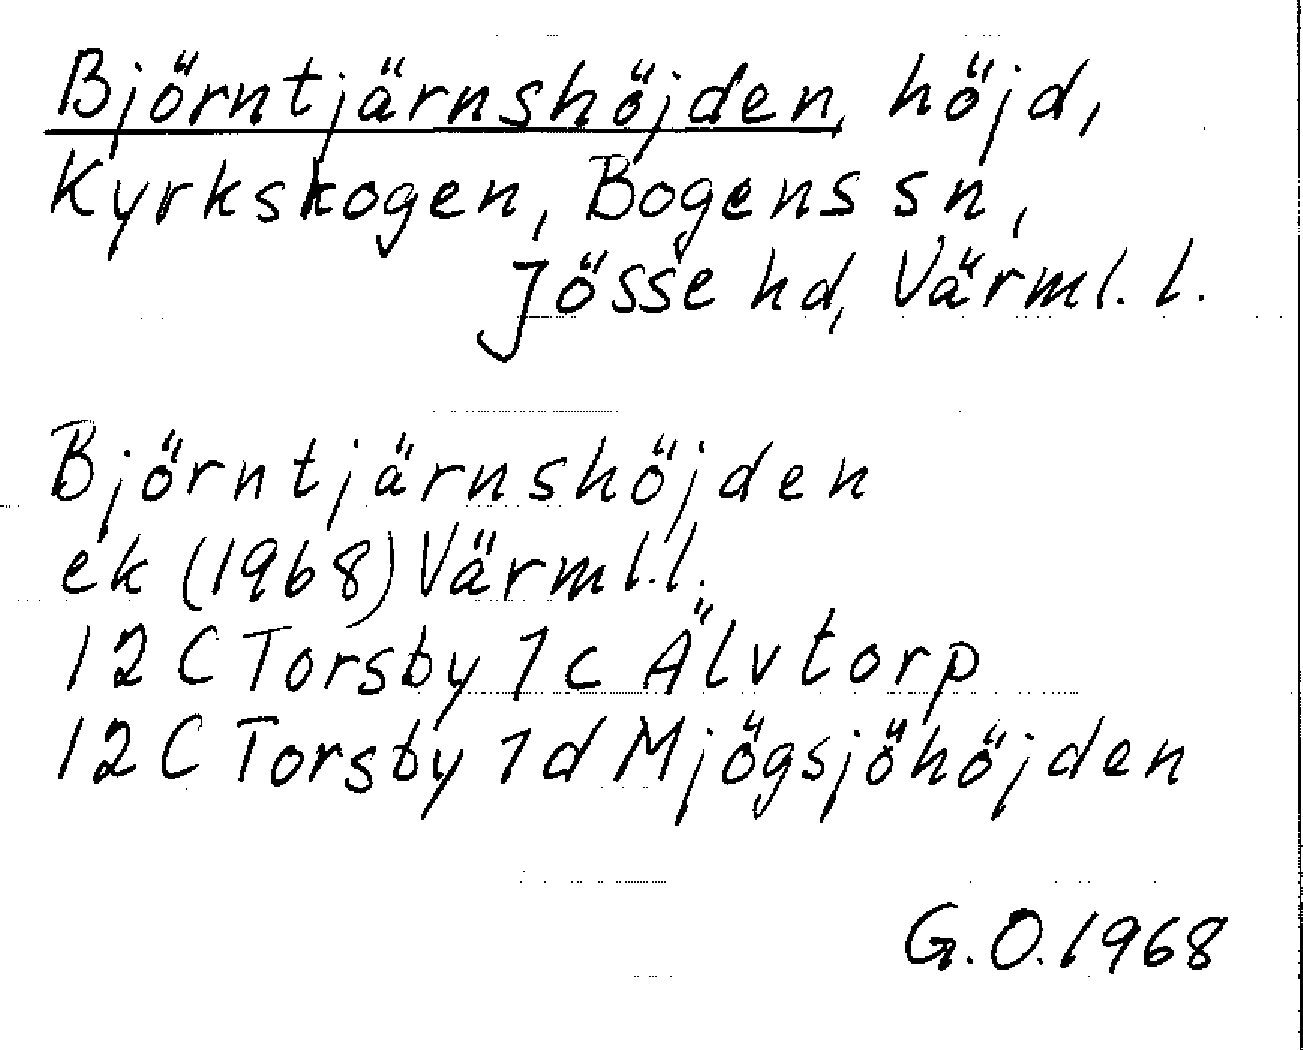 Björntjärnshöjden, höjd,
Kyrkskogen, Bogens sn,
Jösse hd, Värml. l.
Björntjärnshöjden
ek (1968) Värml.l.
12 C Torsby 1 c Älvtorp
12 C Torsby 1 d Mjögsjöhöjden
G.O.1968